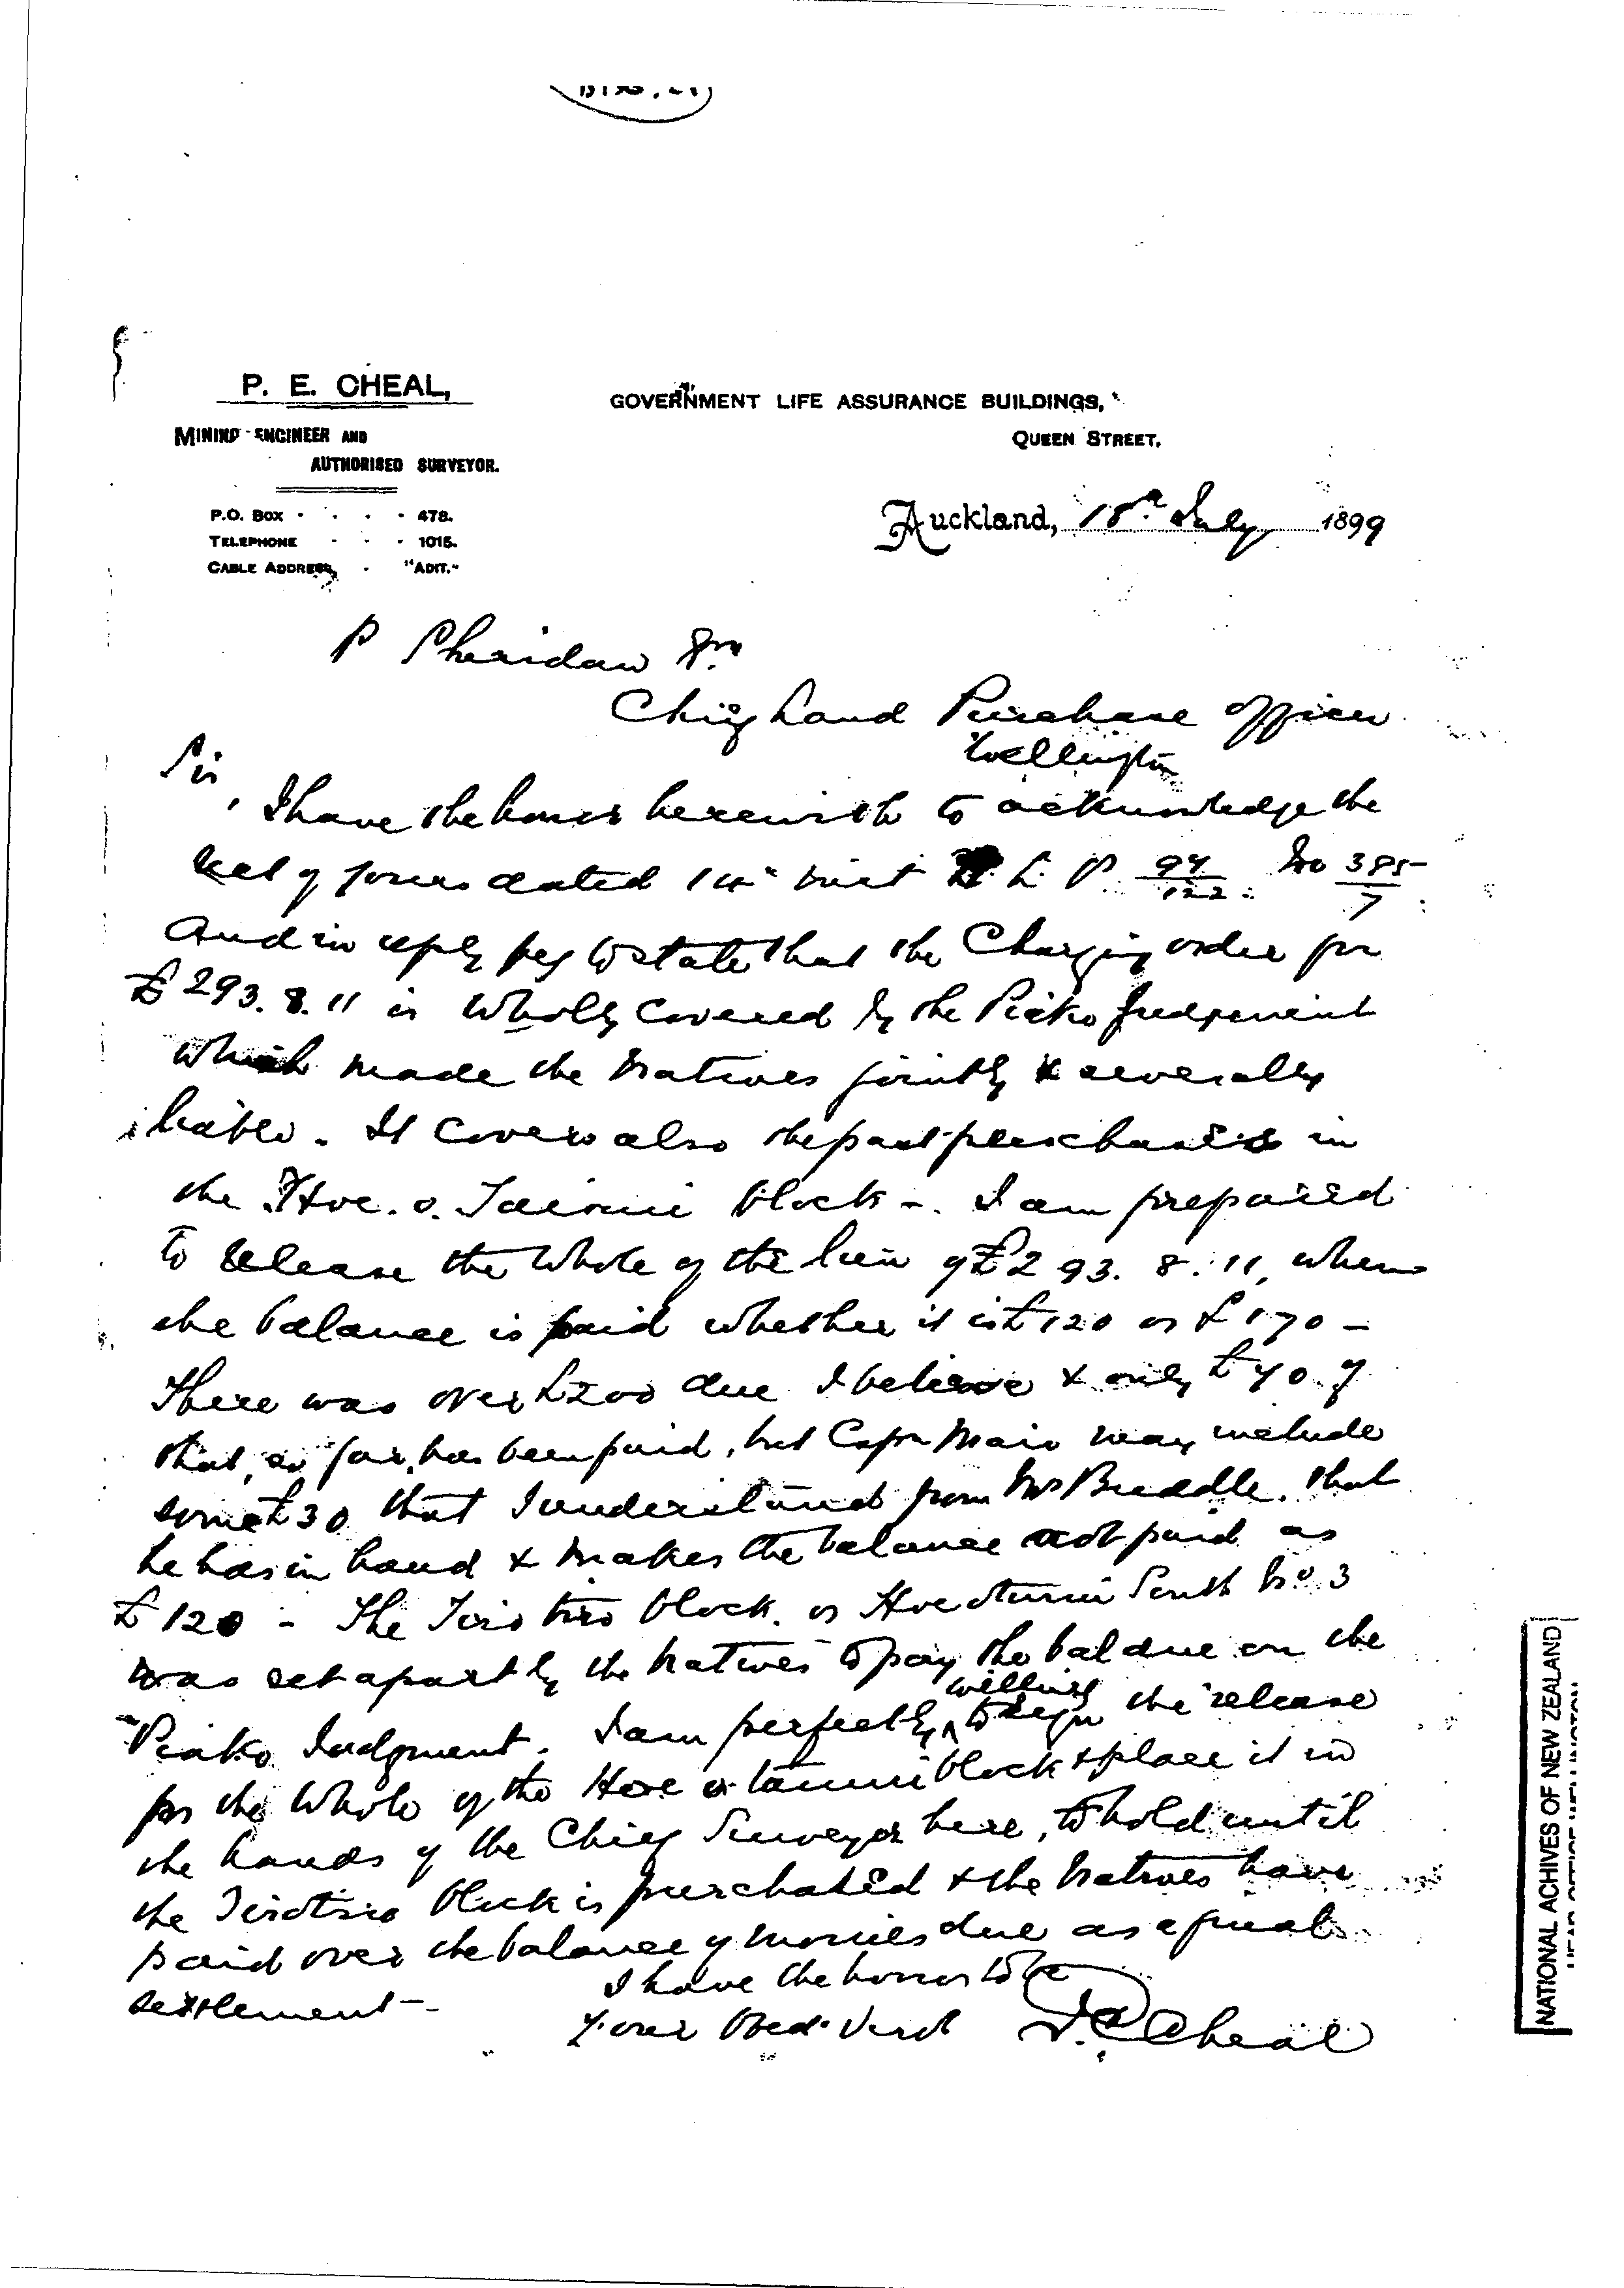 P. E. CHEAL,
MINING ENGINEER AND
AUTHORISED SURVEYOR.
P.O. BOX - - - - 478.
TELEPHONE - - - 1015.
CABLE ADDRESS, - "ADIT."
GOVERNMENT LIFE ASSURANCE BUILDINGS,
QUEEN STREET,
Auckland, 18th July 1899
P Sheridan Esq
Chief Land Purchase Officer
Wellington
Sir,
I have the honor herewith to acknowledge the
rect of yours dated 14th inst L. P. 99/122 No 385/7
And in reply beg to state that the Charging order for
£293.8.11 is wholly covered by the Piako Judgement
which made the Natives jointly & severally
liable. It covers also the past purchases in
the Hoe. o. Tainui block -. I am prepared
to release the whole of the lien of £293.8.11, when
the balance is paid whether it is £120 or £170 -
There was over £200 due I believe & only £40 of
that, so far, has been paid, but Capn Mair may include
some £30 that I understand from Mr Buddle. that
he has in hand & makes the balance not paid as
£120 - The Tirotiro block. or Hoeotainui South No. 3
was set apart by the Natives to pay the bal due on the
Piako Judgment. I am perfectly willing to sign the release
for the whole of the Hoe o tainui block & place it in
the hands of the Chief Surveyor here, to hold until
the Tirotiro block is purchased & the Natives have
paid over the balance of monies due as a final
settlement -.
I have the honor to be
Your Obed. Servt P.E. Cheal
NATIONAL ACHIVES OF NEW ZEALAND
HEAD OFFICE WELLINGTON